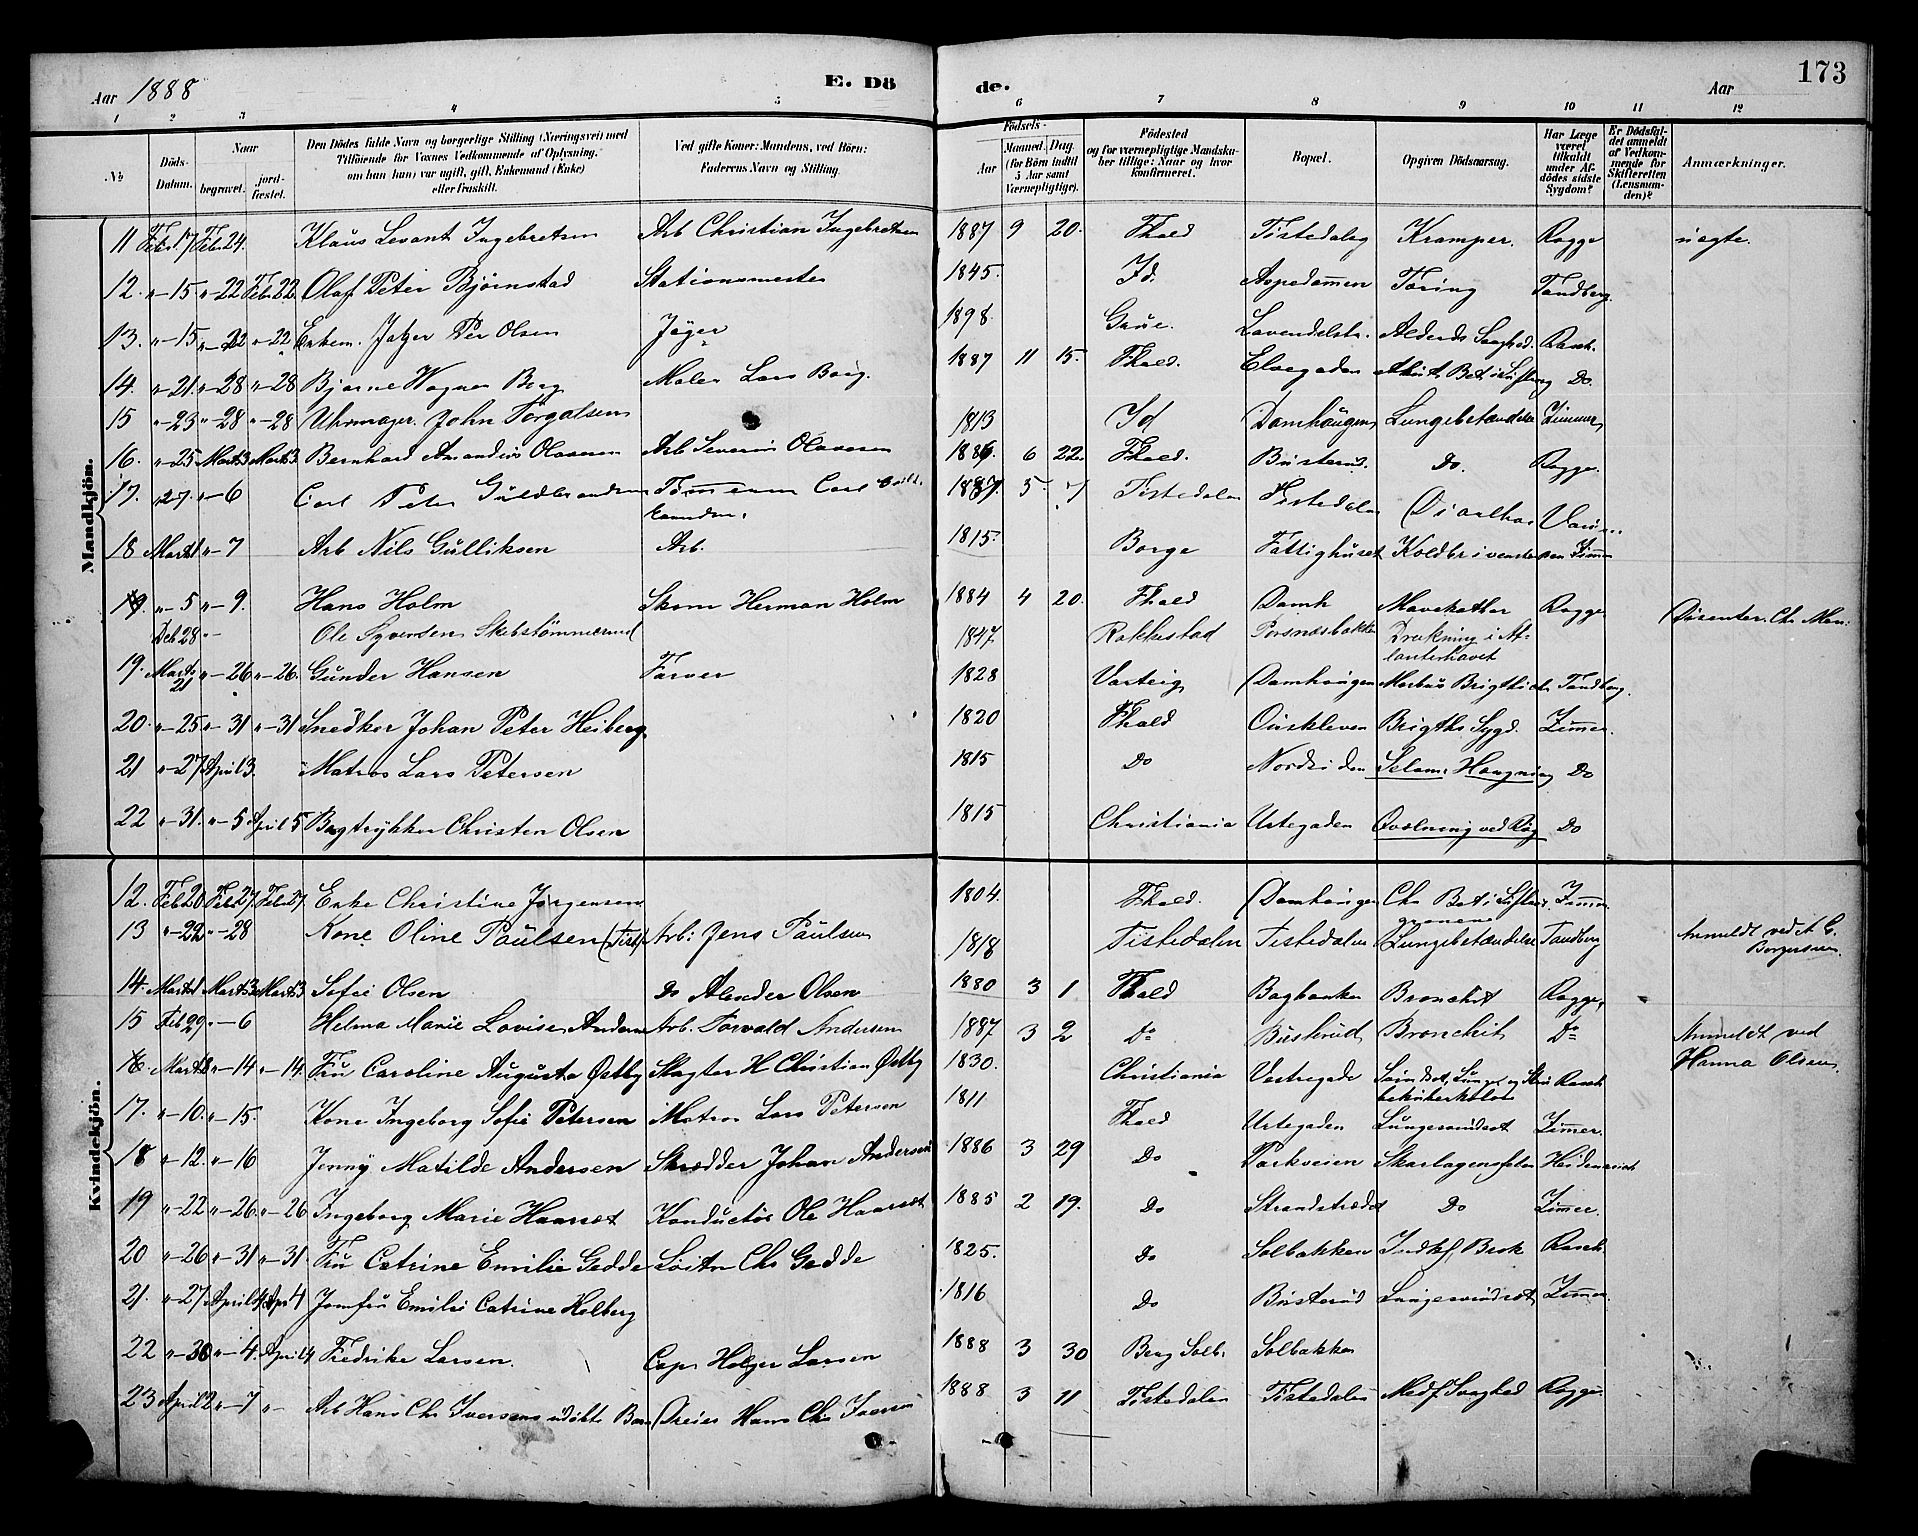 Aar 1888
E. Dö
de.
Aar
173
1 2 3 4 5 6 7 8 9 10 11 12
№
Döds-Datum.
Naar
begravet.
jordfæstet.
Den Dödes fulde Navn og borgerlige Stilling (Næringsvei) med
Tilföiende for Voxnes Vedkommende af Oplysning,
om han (hun) var ugift, gift, Enkemand (Enke)
eller fraskilt.
Ved gifte Koner: Mandens, ved Börn:
Faderens Navn og Stilling.
Födsels-
Aar
Maaned. Dag.
(for Börn indtil
5 Aar samt
Værnepligtige).
Födested
og for værnepligtige Mandsku-
ber tillige: Naar og hvor
konfirmeret.
Bopæl.
Opgiven Dödsaarsag.
Har Læge
været
tilkaldt
under Af-
dödes sidste
Sygdom?
Er Dödsfal-
det anmeldt
af Vedkom-
mende for
Skifteretten
(Lensman-
den)?
Anmærkninger.
Mandkjön.
11 Feb 17 Feb 24. Klaus Levant Ingebretsen Arb Christian Ingebretsen 1887 9 20. Fhald Tistedalen Kramper. Rogge uægte.
12. „-15 „-22 Feb 22. Olaf Peter Bjørnstad Stationsmester 1845. Id. Aspedammen Tæring Tandberg.
13. „-15 „-22 „-22 Enkem. Jæger Per Olsen Jæger 1898. Grue. Lavendelstr. Alderds Svaghed. Rasch.
14. „-21 „-28 „-28 Bjarne Wagner Borg Maler Lars Borg. 1887 11 15. Fhald. Elvegaden Akut. Bet. i Luftrørg Do.
15 „-23 „-28 „-28 Uhrmager John Torgalsen 1813 Id Damhaugen Lungebetændelse Zimmer
16. „-25 Marts 3 Marts 3. Bernhard Amandius Olavesen Arb Severin Olavesen 1886 6 22. Fhald. Busterud. Do. Rogge.
17. 27. „-6 Carl Peter Guldbrandsen Tømmerm Carl Guldbrandsen. 1887. 5. 7 Tistedalen Tistedalen
18 Marts 1 „-7 Arb Nils Gulliksen Arb. 1815. Borge Fattighuset Koldbr i venstre Zimm
19. „-5 „-9. Hans Holm Skom Herman Holm 1884 4 20. Fhald Damh Mavekathar Rogge.
Deb 28 „- Ole Syversen Skibstømmermd 1847. Rakkestad Torsnæsbakken Drukning i Atlanterhavet
19. Marts 21 „-26 „-26. Gunder Hansen Farver 1828 Varteig Damhaugen Morbus Brigthi Tandberg.
20. „-25 „-31 „-31 Snedker Johan Peter Heiberg 1820 Fhald Ouskleven Brigths Sygd. Zimer.
21 „-27 April 3. Matros Lars Petersen 1815 Do Nordsiden Selvm: Hængning Do
22 „-31. „-5 April 5 Bogtrykker Christen Olsen 1815 Christiania Urtegaden Qvælning ved Røg Do
Kvindekjön.
12. Feb 20 Feb 27. Feb 27. Enke Christine Jørgensen 1804. Fhald. Damhaugen Chr Bet i Luftrørgrenene Zimmer
13 „-22 „-28 Kone Oline Paulsen (Tist) Arb: Jens Paulsen 1818 Tistedalen Tistedalen Lungebetændelse Tandberg Anmeldt ved A C. Borgersen.
14. Marts 1 Marts 3 Marts 3 Sofie Olsen Do Alexder Olsen 1880 3 1 Fhald Bagbanken Bronchit Rogge,
15 Feb 29 „-6 Helma Marie Lovise Andersen Arb. Torvald Andersen 1887 3 2 Do Busterud Bronchit Do Anmeldt ved Hanna Olsen.
16. Marts 8 „-14 „-14. Fru Caroline Augusta Østby Slagter H Christian Østby 1830. Christiania Vestregade Rasch
17. „-10. „-15. Kone Ingeborg Sofie Petersen Matros Lars Petersen 1811 Fhald Urtegaden Lungesvindsot Zimer.
18 „-12. „-16 Jenny Matilde Andersen Skrædder Johan Andersen 1886 3 29 Do Parkveien Skarlagensfeber Heidenreich
19 „-22 „-26. „-26 Ingeborg Marie Haarset Konductør Ole Haarset 1885 2 19. Do Strandstrædet Do Zimer.
20 „-26 „-31 „-31 Fru Catrine Emilie Gedde Løitn Chr Gedde 1825. Do Solbakken Indkl. Brok Rasch.
21. „-27 April 4 Apr 4 Jomfru Emilie Catrine Holberg 1816 Do Busterud Lungesvindsot Zimer.
22 „-30 „-4. April 4 Fredrike Larsen. Capt Holger Larsen 1888 3 30 Berg Solb. Solbakken
23 April 2 „-7 „- Arb Hans Chr Iversens udøbte Barn Dreier Hans Chr Iversen 1888 3 11 Tistedalen Tistedalen Medf Svaghed Rogge.